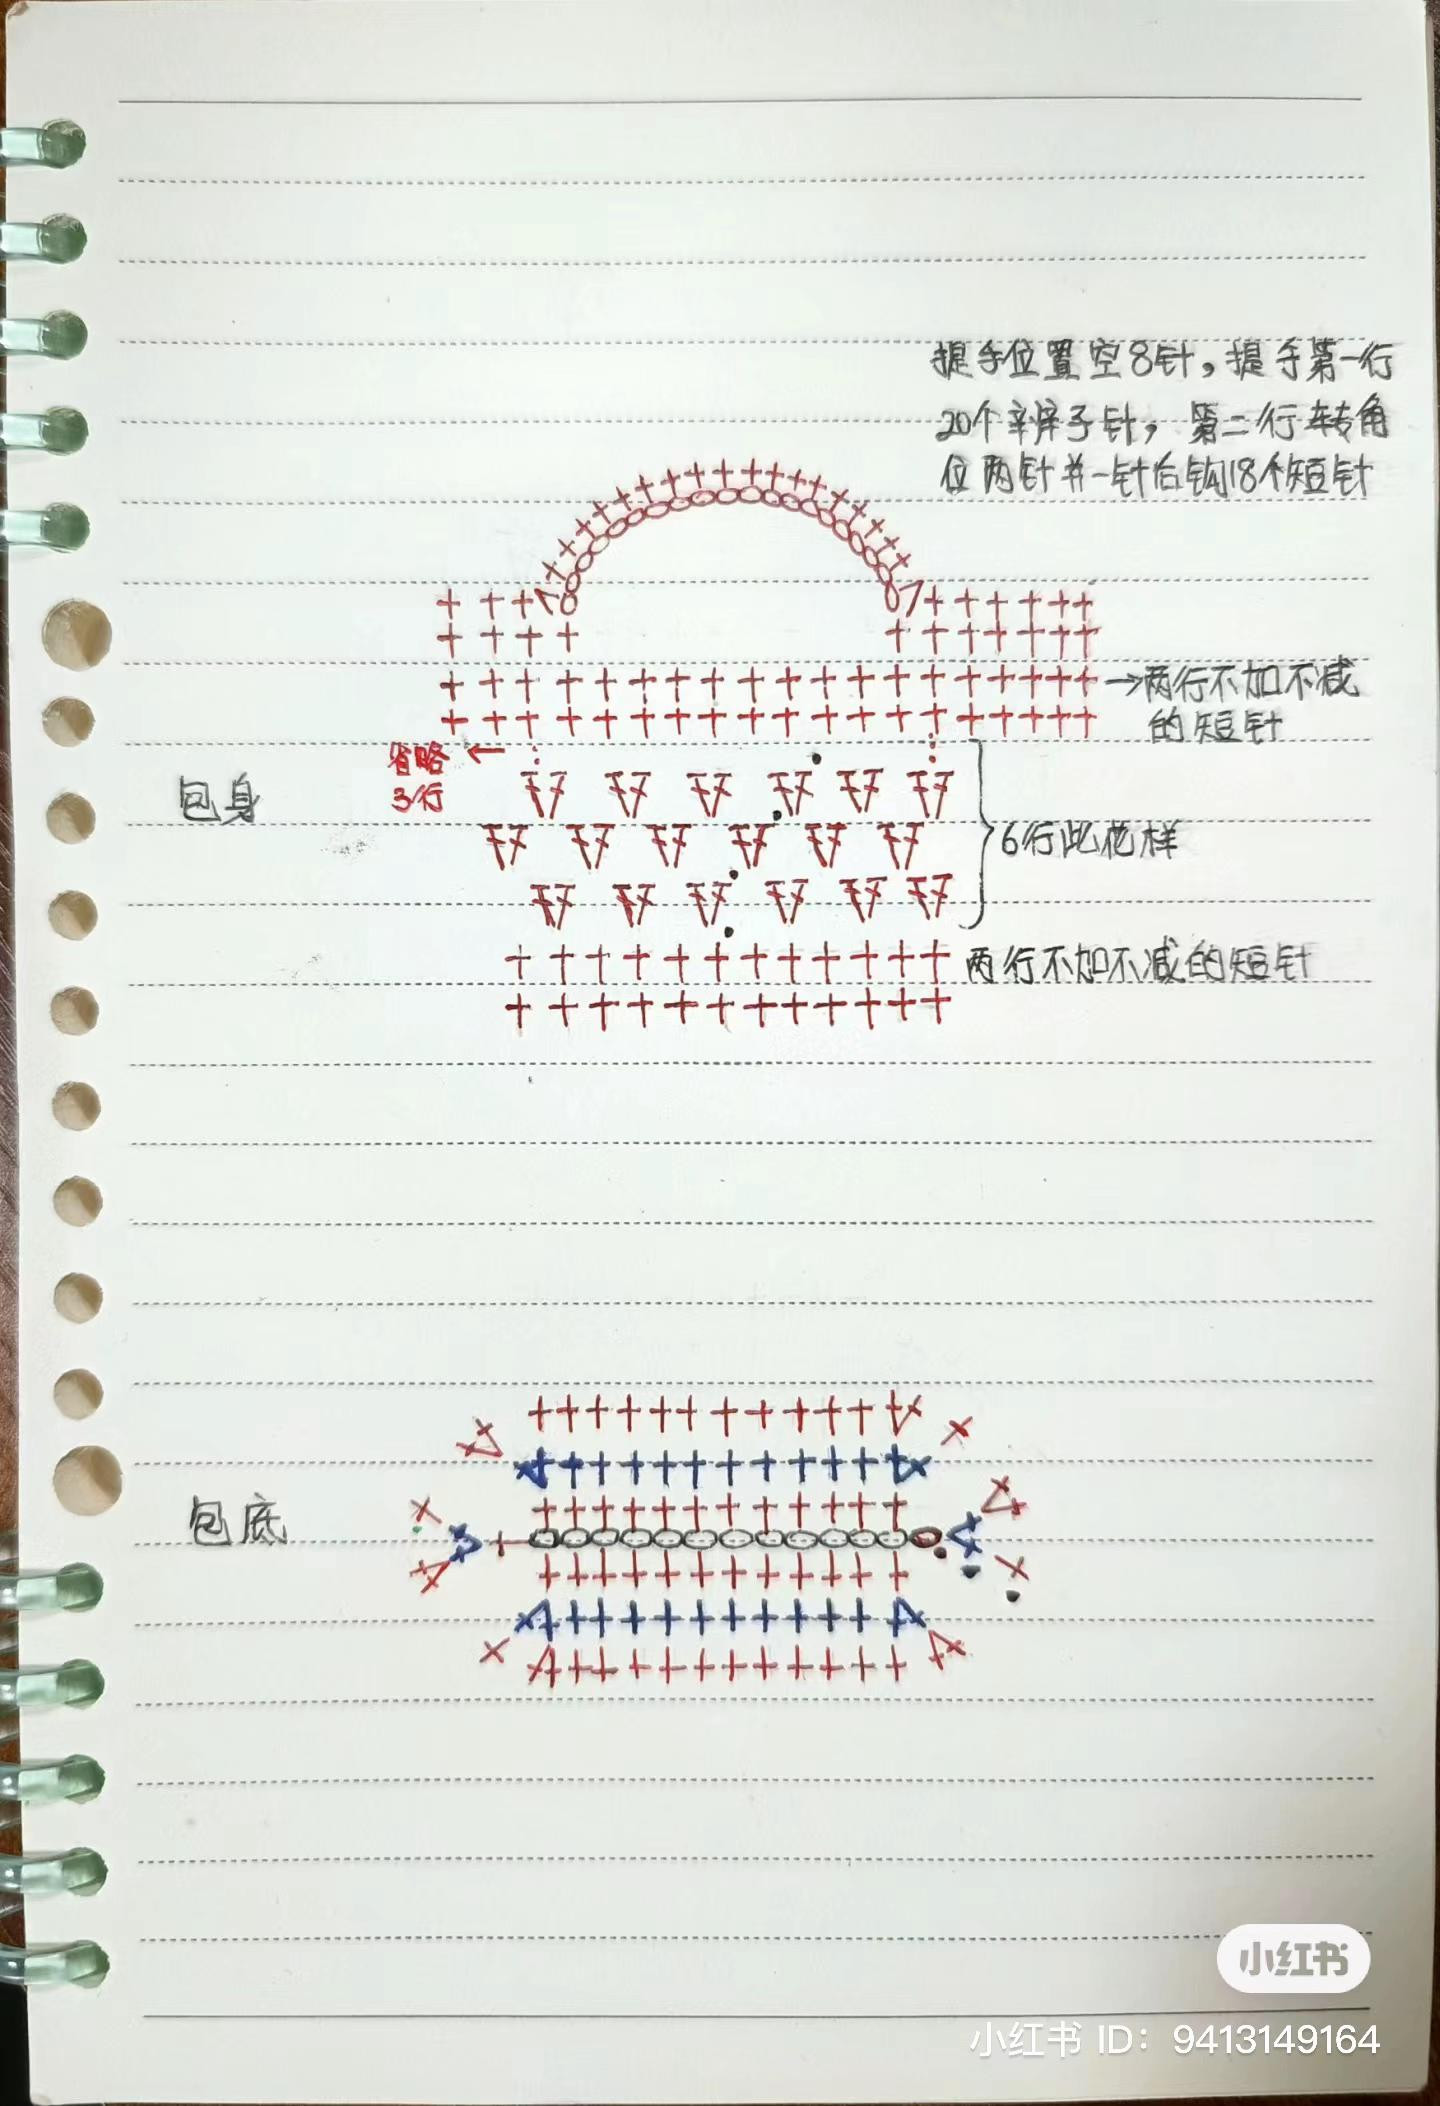 提手位置空8针，提手第一行
20个辫子针，第二行转角
位两针并一针后钩18个短针
→两行不加不减
的短针
省略
3行
包身
6行此花样
两行不加不减的短针
包底
小红书
小红书 ID：9413149164